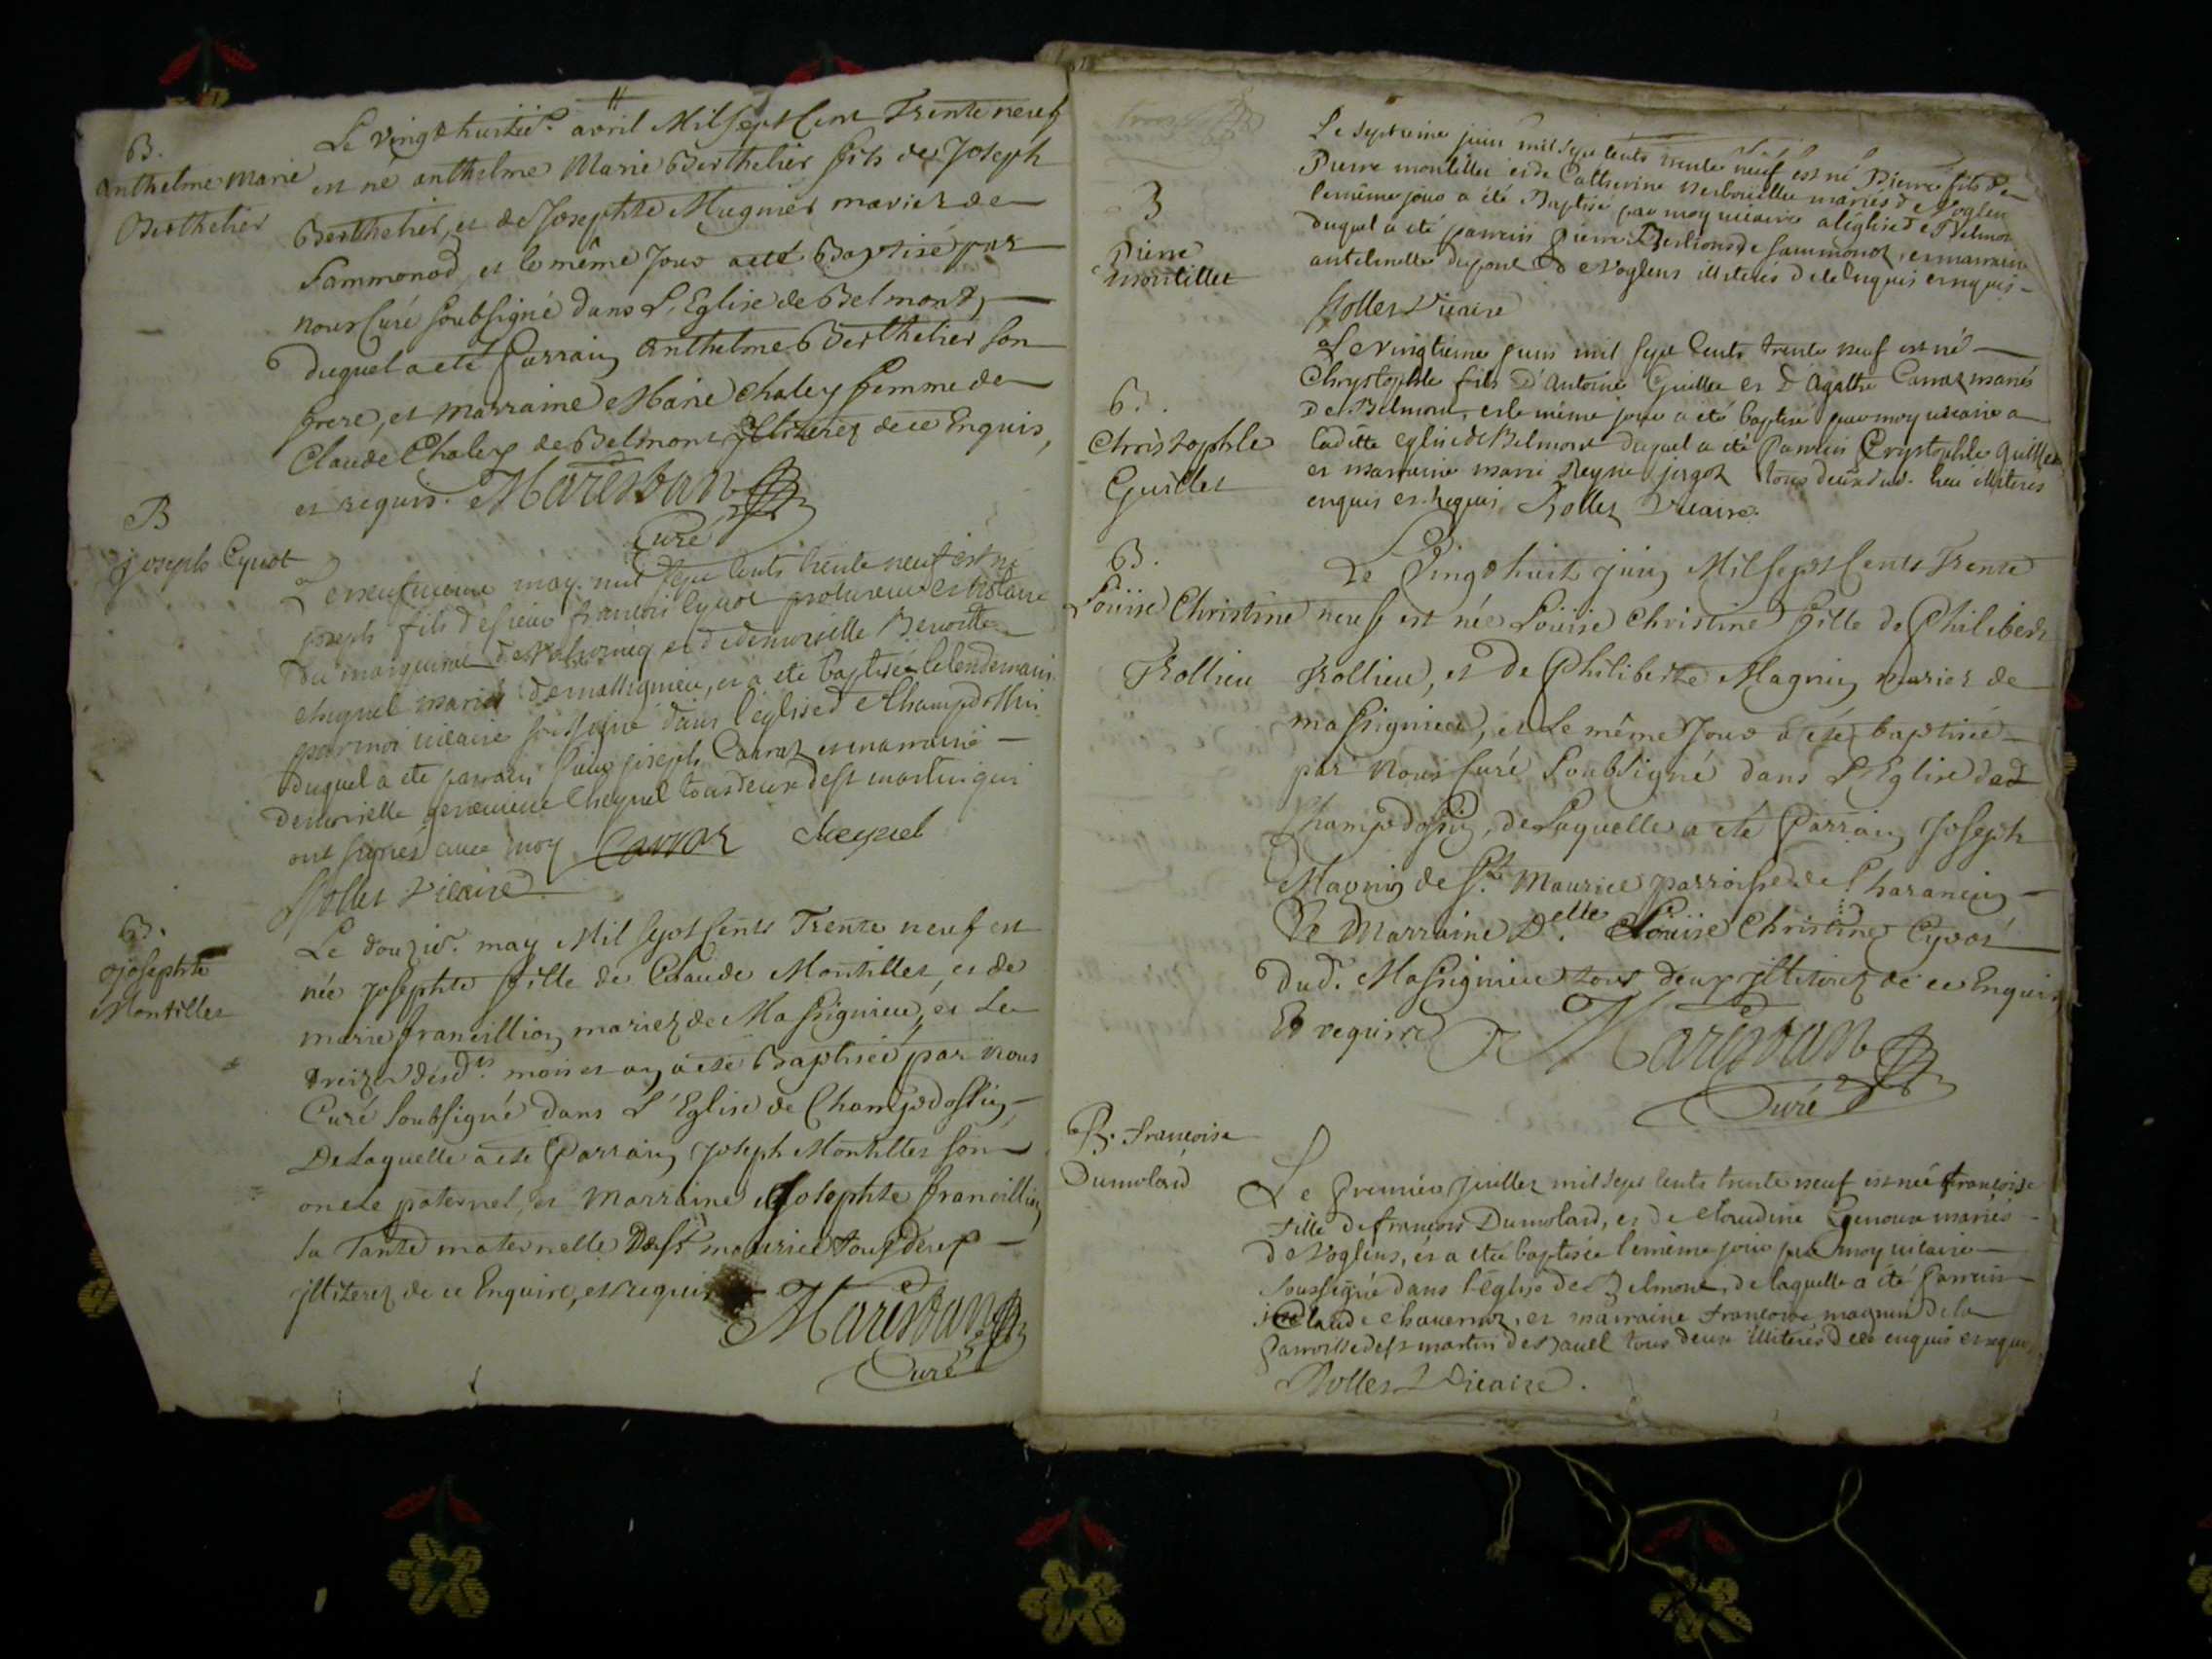 B.
Anthelme Marie
Berthelier
Le vingt huitie. avril Mil sept Cent Trente neuf
est né anthelme Marie Berthelier fils de Joseph
Berthelier, et de Josephte Mugnier mariez de
Sammonod et le même Jour a eté Baptisé par
nous Curé soubsigné dans L'Eglise de Belmont,
Duquel a eté Parrain Anthelme Berthelier son
frere, et Marraine Marie Chaley femme de
Claude Chaley de Belmont illiterez de ce Enquis,
et requis. Marestan
Curé
B
joseph Cyvot
Le neufvieme may mil sept cents trente neuf est né
joseph fils de sieur francois Cyvot procureur et notaire
du marquisat de et de demoiselle Benoitte
cheynel mariés de massignieu, et a eté baptisé le lendemain
par moi vicaire soussigné dans l'eglise de Champdossin
duquel a eté parrain sieur joseph Carraz et marraine
demoiselle cheynel tous deux de st martin qui
ont signés avec moy Carraz cheynel
Rollet Vicaire
B.
josephte
Montillet
Le douzie. may Mil sept Cents Trente neuf est
née josephte fille de Claude Montillet, et de
marie francillion mariez de Massignieu, et Le
treize desdts. mois et an a eté Baptisée par nous
Curé soubsigné dans L'Eglise de Champdossin,
De Laquelle a eté Parrain Joseph Montillet son
oncle paternel, et Marraine Josephte francillion
sa Tante maternelle De st maurice tous deux
illiterez de ce Enquire, et requis
Marestan
Curé
B
Pierre
montillet
Le septieme juin mil sept cents trente neuf est né Pierre fils de
Pierre montillet et de Catherine mariés de Voglen
le même jour a été Baptisé par moy vicaire a l'église de Belmon
duquel a eté parrain Pierre de sammonot, et marraine
antelmette dupont de Voglens illiterés de ce enquis et requis
Rollet Vicaire
B.
Christophle
Guillet
Le vingtieme juin mil sept cents trente neuf est né
Chrystophle fils D'Antoine Guillet et D'Agathe Carraz mariés
de Belmont, et le même jour a été baptisé par moy vicaire a
laditte eglise de Belmont duquel a eté Parrain Crystophle Guillet
et marraine marie Reyne tous deux dud. lieu illiteres
enquis et requis. Rollet Vicaire.
B.
Loüise Christine
Trollieu
Le Vingt huit juin Mil sept Cents Trente
neuf est née Loüise Christine fille de Philibert
Trollieu, et De Philiberte Magnin mariez de
massignieu, et Le même Jour a été baptisée
par nous Curé soubsigné dans L'Eglise de
Champdossin, de Laquelle a eté Parrain Joseph
Magnin de St. Maurice parroisse de Charancin
Et Marraine D.elle Loüise Christine Cyvot
dud. Massignieu tous deux illiterez de ce Enquis
Et requis
Marestan
Curé
B. francoise
Dumolard
Le premier juillet mil sept cents trente neuf est née francoise
fille de francois Dumolard, et de claudine Genoux mariés
de Voglens, et a eté baptisée le même jour par moy vicaire
soussigné dans l'Eglise de Belmont, de laquelle a été parrain
Claude chavernoz, et marraine francoise magnin de la
parroisse de st martin de Bavel tous deux illiterés de ce enquis et requis
Rollet Vicaire.